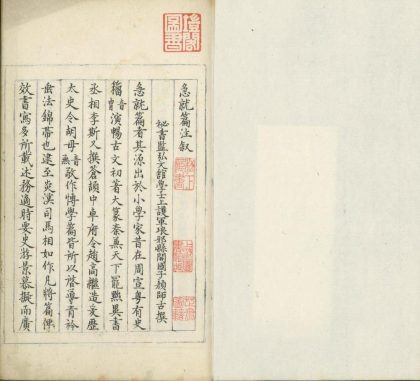 急就篇注叙
秘書監弘文館學士上護軍琅邪縣開國子顔師古撰
急就篇者其源出於小學家昔在周宣粤有史
籀音胄演暢古文初著大篆秦兼天下罷黜異書
丞相李斯又撰蒼頡中車府令趙高繼造爰歷
太史令胡母音無敬作博學篇皆所以啓導青衿
垂法錦帶也逮至炎漢司馬相如作凡將篇俾
效書寫多所載述務適時要史游景慕擬而廣